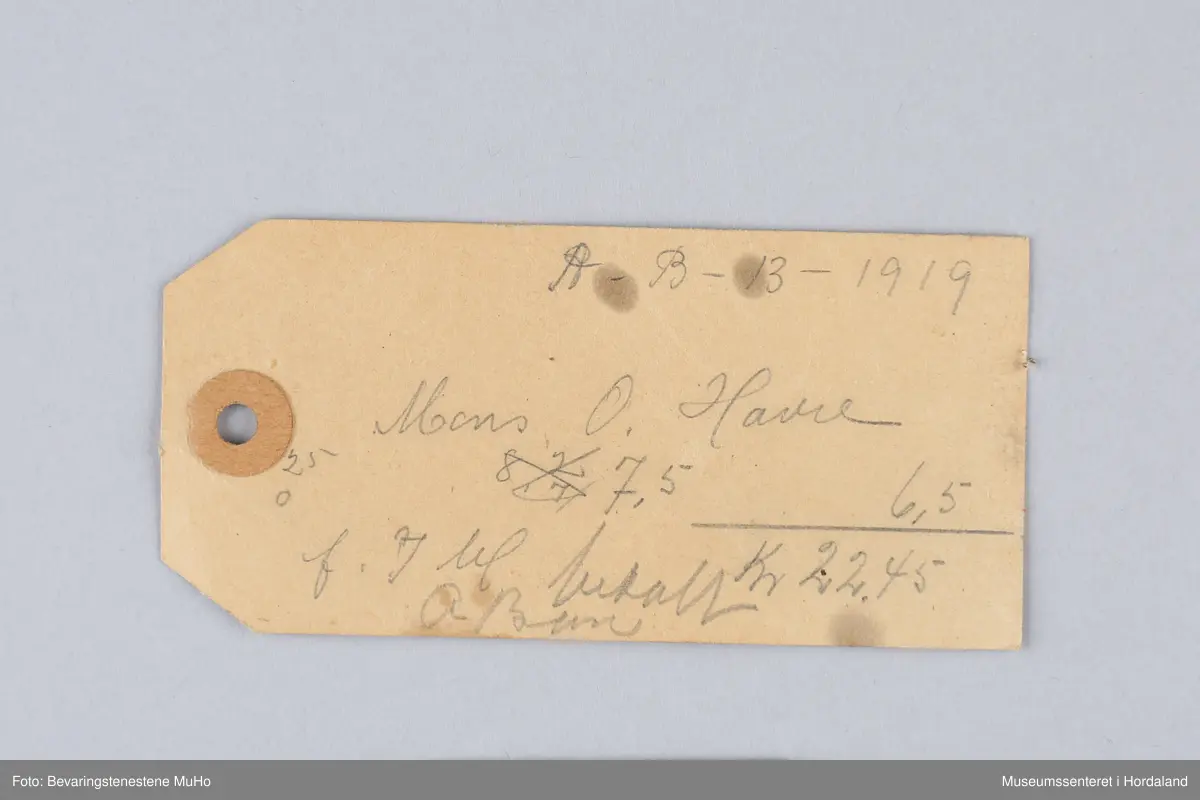 A - B - 13 - 1919
Mons O. Havre
25
0
8 7,5
6,5
f. betalt Kr 22.45
Foto: Bevaringstenestene MuHo
Museumssenteret i Hordaland